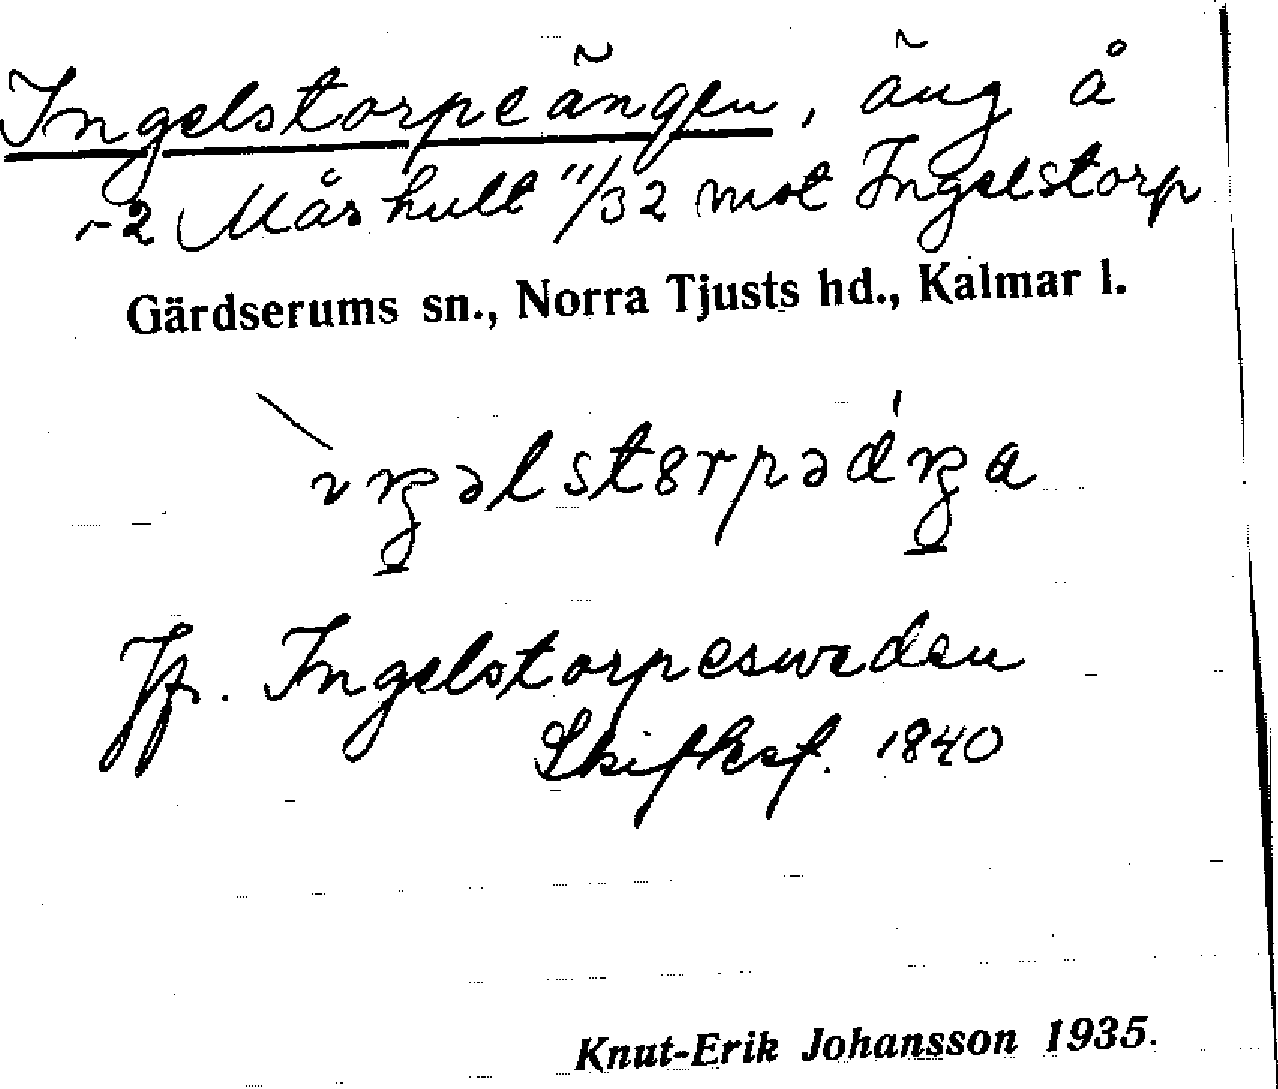 Ingelstorpeängen, äng å
-2 Måshult 11/32 mot Ingelstorp
Gärdserums sn., Norra Tjusts hd., Kalmar l.
Jfr. Ingelstorpesweden
Skiftesf. 1840
Knut-Erik Johansson 1935.